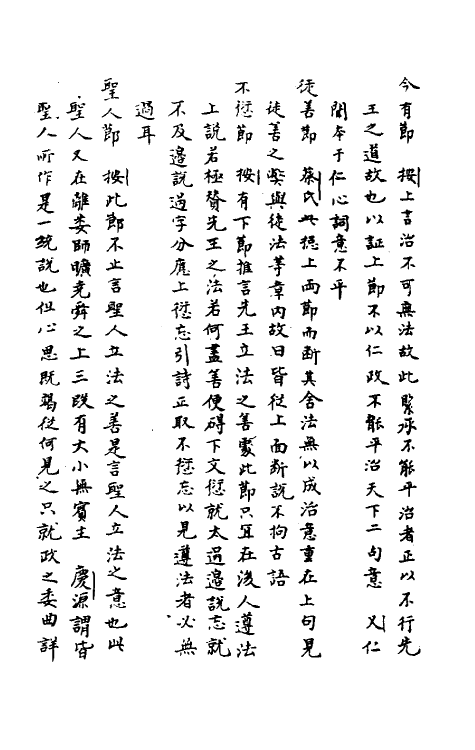 今有節　按上言治不可無法故此緊承不能平治者正以不行先
王之道故也以証上節不以仁政不能平治天下二句意　又仁
聞本于仁心詞意不平
徒善節　蔡氏此總上兩節而斷其舍法無以成治意重在上句見
徒善之弊與徒法等章内故曰皆從上面断說不拘古語
不愆節　按有下節推言先王立法之善處此節只宜在後人遵法
上說若極賛先王之法若何盡善便碍下文愆就太過邉說忘就
不及邉說過字分應上愆忘引詩正取不愆忘以見遵法者必無
過耳
聖人節　按此節不止言聖人立法之善是言聖人立法之意也此
聖人又在離婁師曠堯舜之上三段有大小無賓主　慶源謂皆
聖人所作是一統說也但心思既竭從何見之只就政之委曲詳